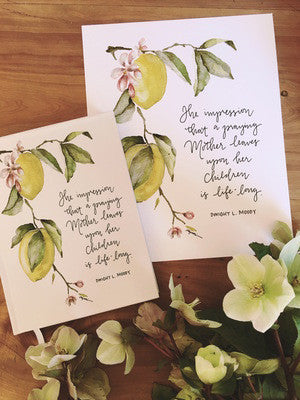 The impression
that a praying
Mother leaves
upon her
Children
is life-long
DWIGHT L. MOODY
The impression
that a praying
Mother leaves
upon her
Children
is life-long.
DWIGHT L. MOODY